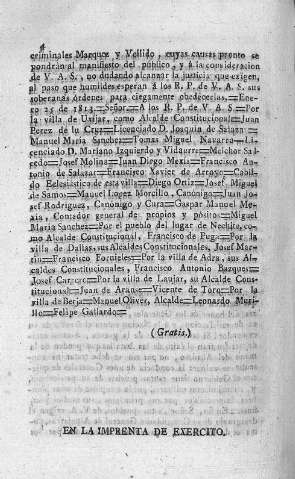 4
criminales Marquez y Vellido, cuyas causas pronto se
pondrán al manifiesto del público, y á la consideracion
de V. A. S., no dudando alcanzar la justicia que exigen,
al paso que humildes esperan á los R. P. de V. A. S. sus
soberanas órdenes para ciegamente obedecerlas.=Ene-
ro 25 de 1813.=Señor.=A los R. P. de V. A S.=Por
la villa de Usijar, como Alcalde Constitucional=Juan
Perez de la Cruz=Licenciado D. Joaquin de Salazar=
Manuel Maria Sanchez=Tomas Miguel Navarro=Li-
cenciado D. Mariano Izquierdo y Vidaurre=Melchor Sal-
cedo=Josef Molina=Juan Diego Mexia=Francisco An-
tonio de Salazar=Francisco Xavier de Arroyo=Cabil-
do Eclesiástico de esta villa=Diego Ortiz=Josef Miguel
de Samos=Manuel Lopez Morcillo, Canónigo=Juan Jo-
sef Rodriguez, Canónigo y Cura=Gaspar Manuel Me-
xia, Contador general de propios y pósito=Miguel
Maria Sanchez=Por el pueblo del lugar de Nechite, co-
mo Alcalde Constitucional, Francisco de Puga=Por la
villa de Dalías, sus Alcaldes Constitucionales, Josef Mar-
tin=Francisco Fornieles=Por la villa de Adra, sus Al-
caldes Constitucionales, Francisco Antonio Bazques=
Josef Carrero=Por la villa de Laujar, su Alcalde Cons-
titucional=Juan de Aran=Vicente de Toro=Por la
villa de Berja=Manuel Oliver, Alcalde=Leonardo Muri-
llo=Felipe Gallardo=
(Gratis.)
EN LA IMPRENTA DE EXERCITO.